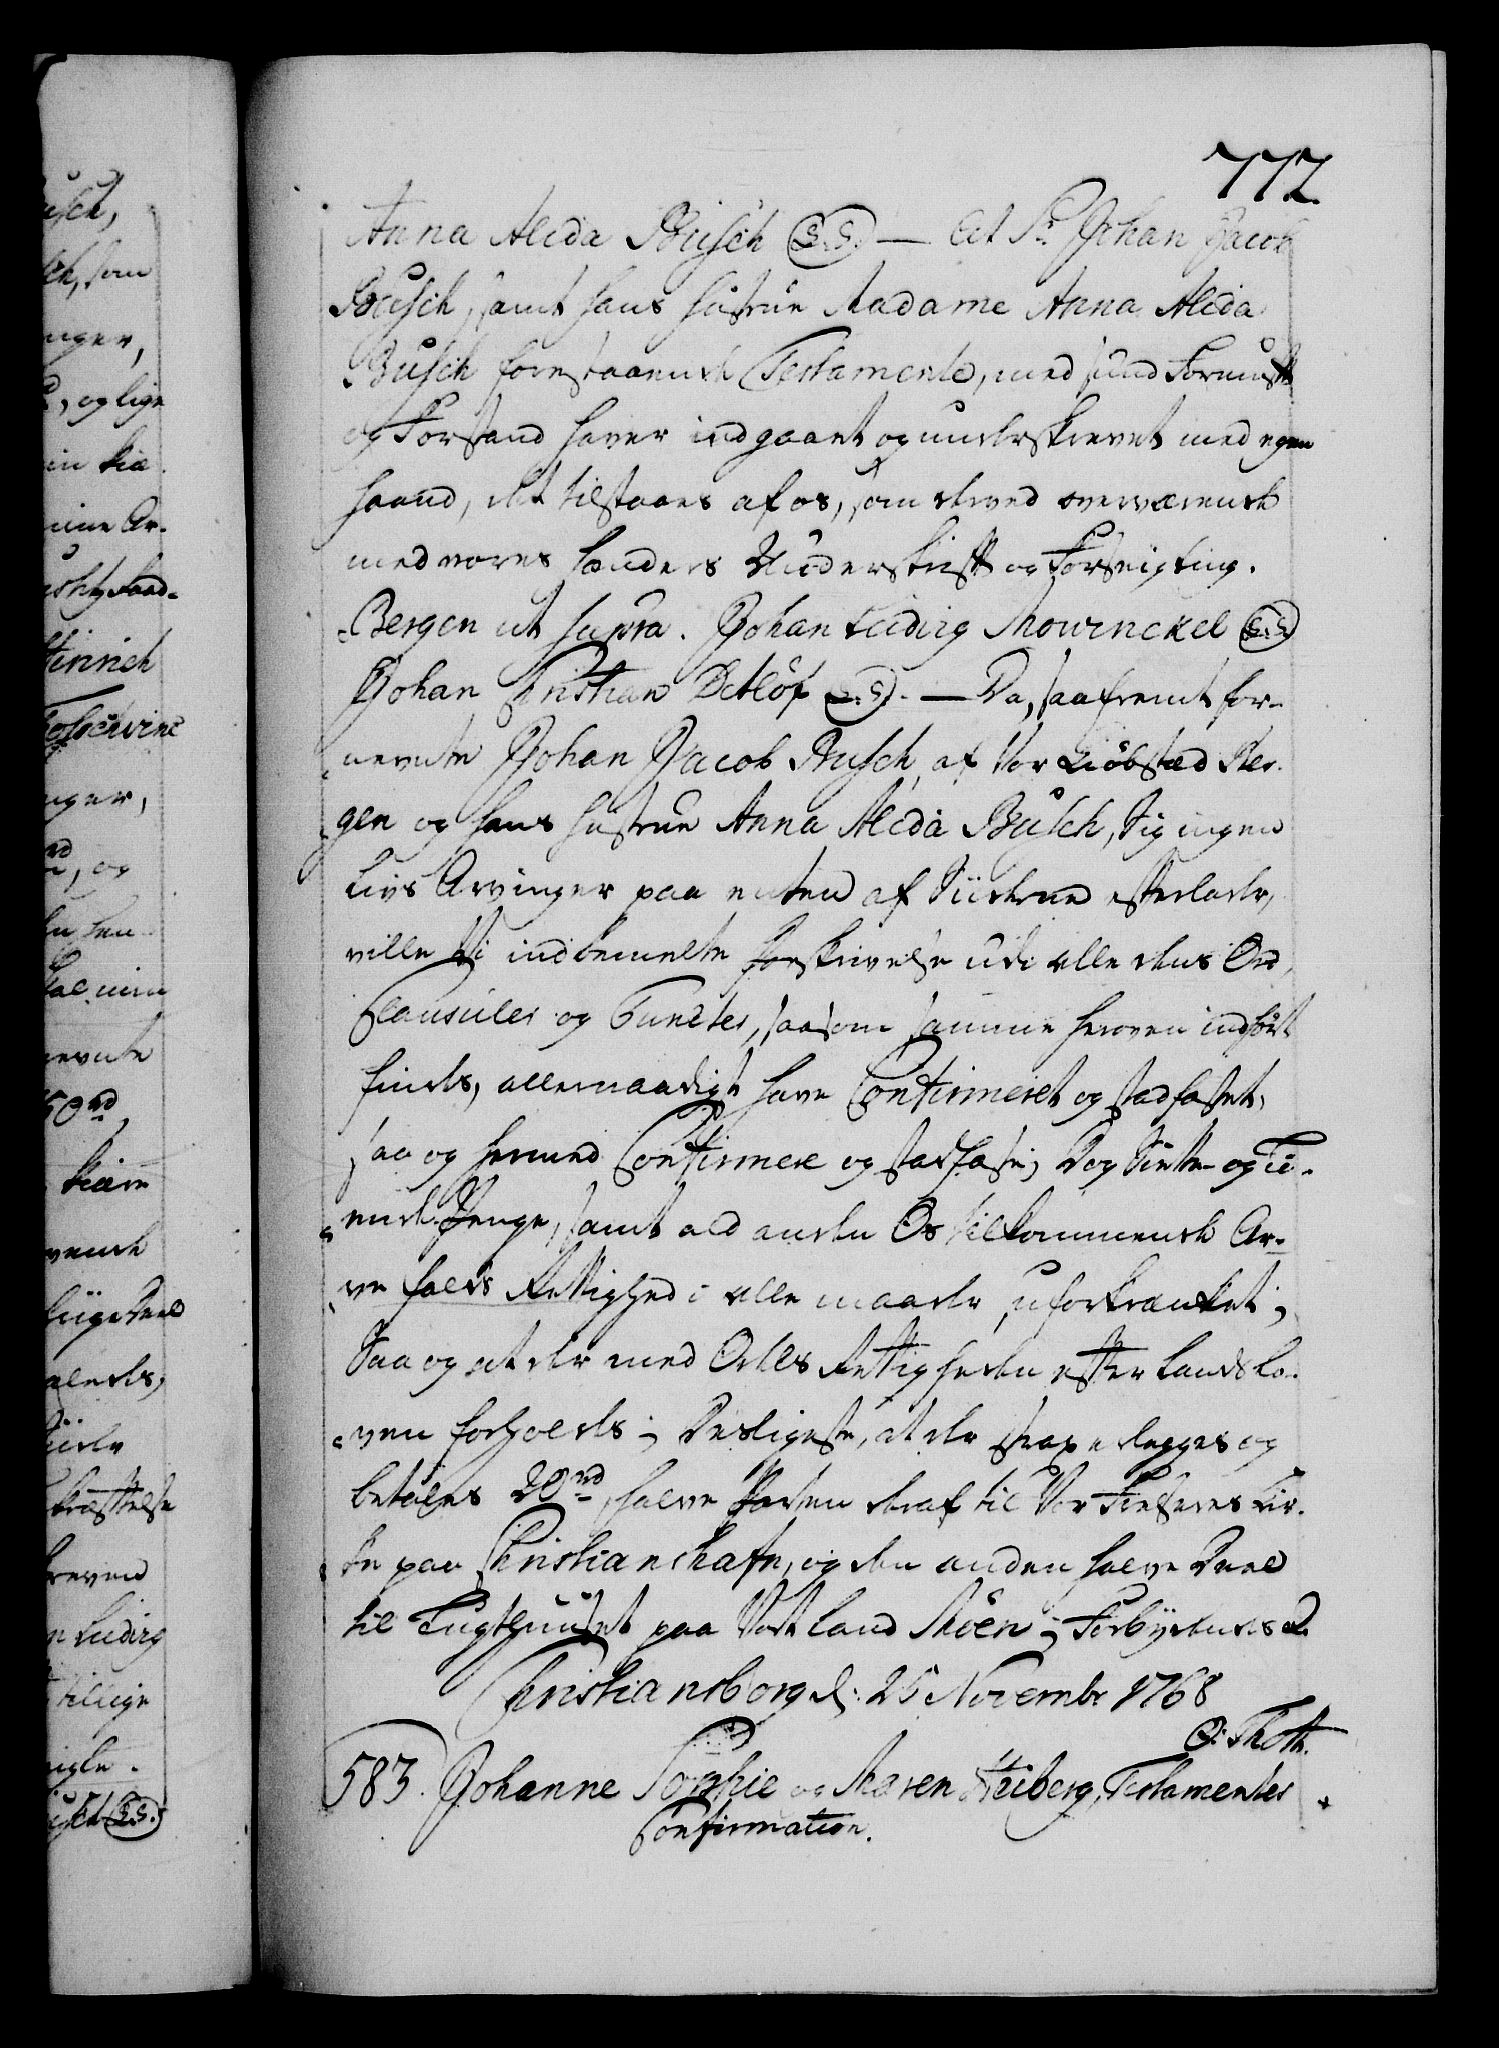 772
Anna Alida Busch (L.S.) — At Sr. Johan Jacob
Busch, samt hans Hustrue Madame Anna Alida
Busch forestaaende Testamente, med sund Fornuft
og Forstand haver indgaaet og underskrevet med egen
haand, det tilstaaes af os, som derved overværende
med vores hænders Underskrift og Forseigling.
Bergen ut supra. Johan Ludvig Mowinckel (L.S.)
Johan Christian Detlöf (L.S.). — Da, saafremt for-
nevnte Johan Jacob Busch, af Vor Kiöbsted Ber-
gen og hans Hustrue Anna Alida Busch, sig ingen
Livs Arvinger paa enten af Siiderne efterlader,
ville Vi indbemelte Forskrivelse udi alle dens Ord,
Clausuler og Puncter, saasom samme heroven indfört
findes, allernaadigst have Confirmeret og stadfæstet,
saa og hermed Confirmere og stadfæste; Dog Siette- og Ti-
ende Penge, samt ald anden Os tilkommende Ar-
ve falds Rettighed i alle maader uforkrænket;
Saa og at der med Odels Rettigheden efter Landslo-
ven forholdes; Desligeste, at der strax erlegges og
betales 20 rd, halve Parten deraf til Vor Frelseres Kir-
ke paa Christianshafn, og den anden halve Deel
til Tugthuuset paa Vort Land Möen; Forbydendes &c.
Christiansborg d: 25 Novembr 1768
O: Thott.
583. Johanne Sophie og Maren Friberg, Testamentes
Confirmation.